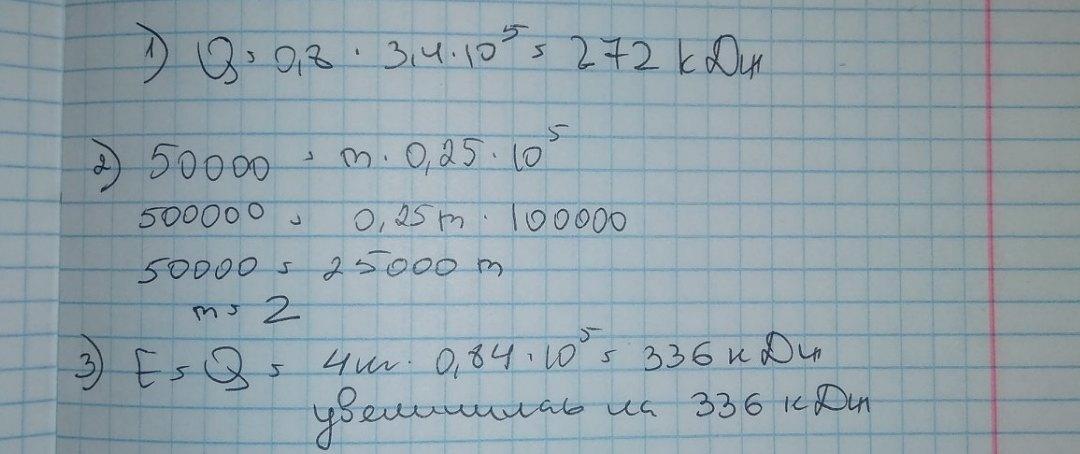 1) Q = 0,8 · 3,4 · 10⁵ = 272 кДж
2) 50000 = m · 0,25 · 10⁵
500000 = 0,25m · 100000
50000 = 25000 m
m = 2
3) E = Q = 4кг · 0,84 · 10⁵ = 336 кДж
увеличилась на 336 кДж